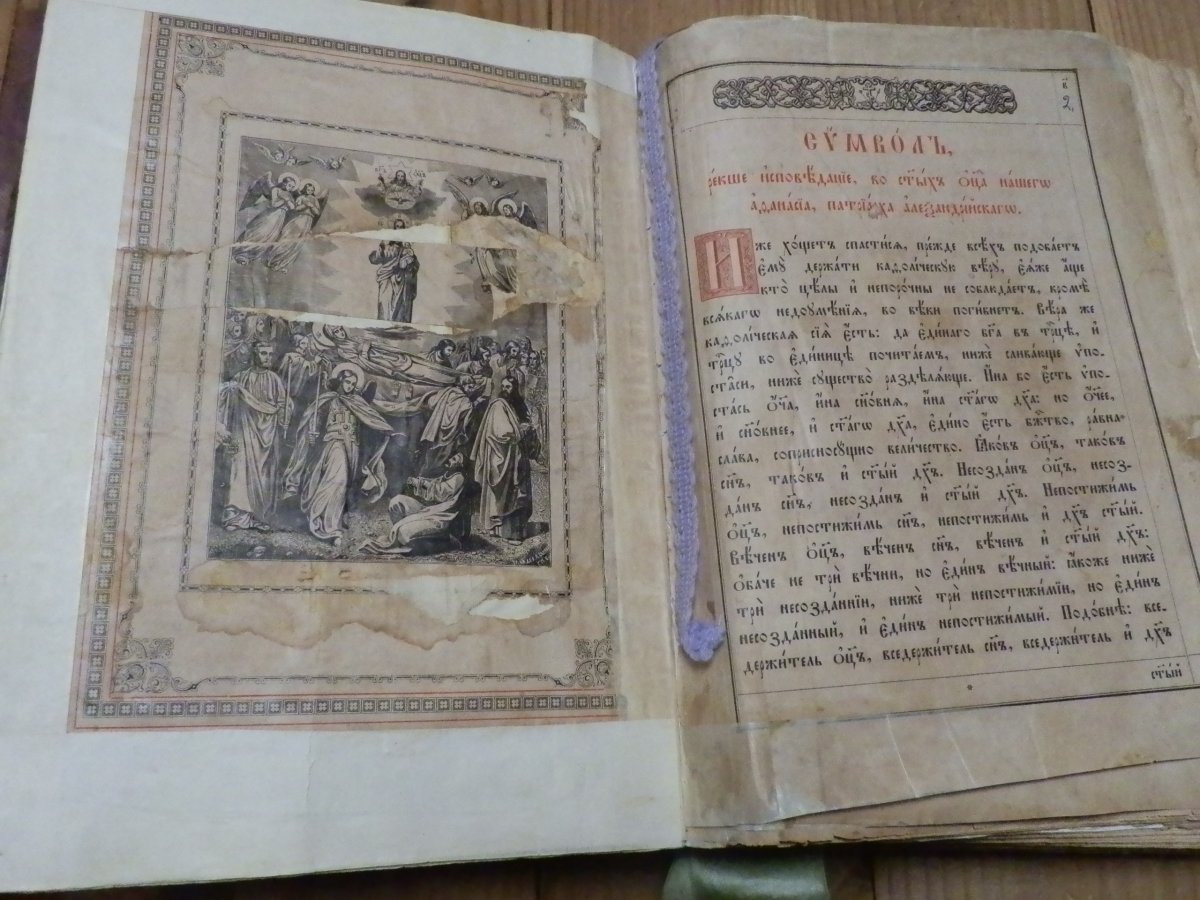 в҃
2
СѶ́МВОЛЪ,
ре́кше и҆сповѣ́данїе, во ст҃ы́хъ ѻ҆ц҃а̀ на́шегѡ
а҆ѳана́сїа, патрїа́рха а҆леѯандрі́йскагѡ.
И҆́же хо́щетъ спасти́сѧ, пре́жде всѣ́хъ подоба́етъ
є҆мꙋ̀ держа́ти каѳоли́ческꙋю вѣ́рꙋ, є҆ѧ́же а҆́ще
кто̀ цѣ́лы и҆ непоро́чны не соблюда́етъ, кромѣ̀
всѧ́кагѡ недоꙋмѣ́нїѧ, во вѣ́ки поги́бнетъ. Вѣ́ра же
каѳоли́ческаѧ сїѧ̀ є҆́сть: да є҆ди́наго бг҃а въ трⷪ҇цѣ, и҆
трⷪ҇цꙋ во є҆ди́ницѣ почита́емъ, нижѐ слива́юще ѵ҆по-
ста̑си, нижѐ сꙋщество̀ раздѣлѧ́юще. И҆́на бо є҆́сть ѵ҆по-
ста́сь ѻ҆́ч҃а, и҆́на сн҃о́внѧ, и҆́на ст҃а́гѡ дх҃а: но ѻ҆́ч҃ее,
и҆ сн҃о́внее, и҆ ст҃а́гѡ дх҃а, є҆ди́но є҆́сть бжⷭ҇тво̀, ра́вна
сла́ва, соприсносꙋ́щно вели́чество. Ꙗ҆ко́въ ѻ҆ц҃ъ, тако́въ
сн҃ъ, тако́въ и҆ ст҃ы́й дх҃ъ. Несозда́нъ ѻ҆ц҃ъ, несоз-
да́нъ сн҃ъ, несозда́нъ и҆ ст҃ы́й дх҃ъ. Непостижи́мь
ѻ҆ц҃ъ, непостижи́мь сн҃ъ, непостижи́мь и҆ дх҃ъ ст҃ы́й.
Вѣ́ченъ ѻ҆ц҃ъ, вѣ́ченъ сн҃ъ, вѣ́ченъ и҆ ст҃ы́й дх҃ъ:
ѻ҆ба́че не трѝ вѣ́чни, но є҆ди́нъ вѣ́чный: ꙗ҆́коже нижѐ
трѝ несозда́ннїи, нижѐ трѝ непостижи́мїи, но є҆ди́нъ
несозда́нный, и҆ є҆ди́нъ непостижи́мый. Подо́бнѣ: все-
держи́тель ѻ҆ц҃ъ, вседержи́тель сн҃ъ, вседержи́тель и҆ дх҃ъ
ст҃ы́й